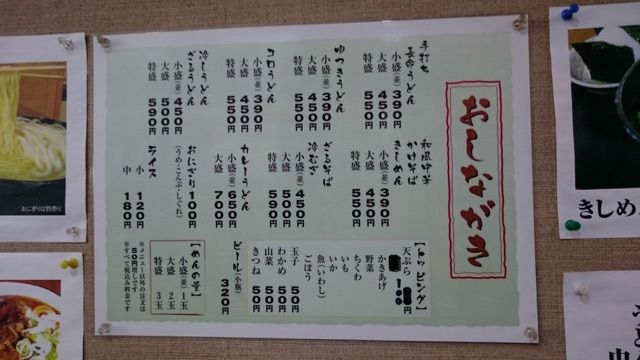 おしながき
手打ち
長命うどん
小盛(並)390円
大盛 450円
特盛 550円
ゆつきうどん
小盛(並)390円
大盛 450円
特盛 550円
コロうどん
小盛(並)390円
大盛 450円
特盛 550円
冷しうどん
ざるうどん
小盛(並)450円
大盛 500円
特盛 590円
和風中華
かけそば
きしめん
小盛(並)390円
大盛 450円
特盛 550円
ざるそば
冷むぎ
小盛(並)450円
大盛 500円
特盛 590円
カレーうどん
小盛(並)650円
大盛 700円
おにぎり 100円
(うめ・こんぶ・しぐれ)
ライス
小 120円
中 180円
【トッピング】
天ぷら
かきあげ
野菜
ちくわ
いも
いか
魚(いわし)
ごぼう
玉子 50円
わかめ 50円
山菜 50円
きつね 50円
ビール(小瓶)
320円
【めんの量】
小盛(並)1玉
大盛 2玉
特盛 3玉
※メニュー以外の注文は
50円増しです
※すべて税込み料金です
おにぎりは別売り
きしめ